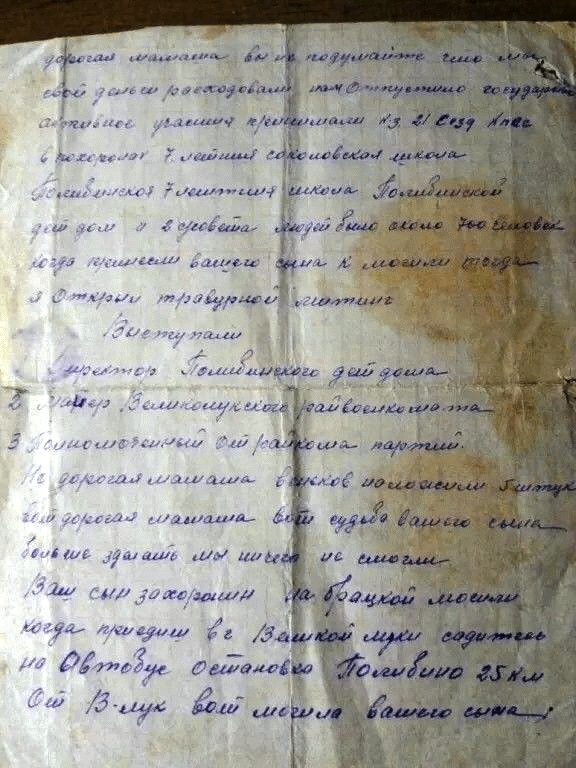 дорогая мамаша вы не подумайте что мы
свой деньги расходовали нам Отпустило государство
активное участия принимали к/з. 21 сезд Кпсс
в похоронах 7. летния соколовская школа
Полибинская 7 летния школа Полибинской
дет дом и 2 сровета людей было около 700 человек
когда принесли вашего сына к могили тогда
я Открыл траурной митинг
Выступали
Директор Полибинского дет дома
2. майер Великолукского райвоенкомата
3 Полномоченный от райкома партий.
Но дорогая мамаша венков наложили 5 штук
вот дорогая мамаша вот судьба вашего сына
больше зделать мы ничего не смогли
Ваш сын захоронин на брацкой могили
когда приедиш в г Великой луки садитесь
на Автобус остановка Полибино 25 км
От В-лук вот могила вашего сына.